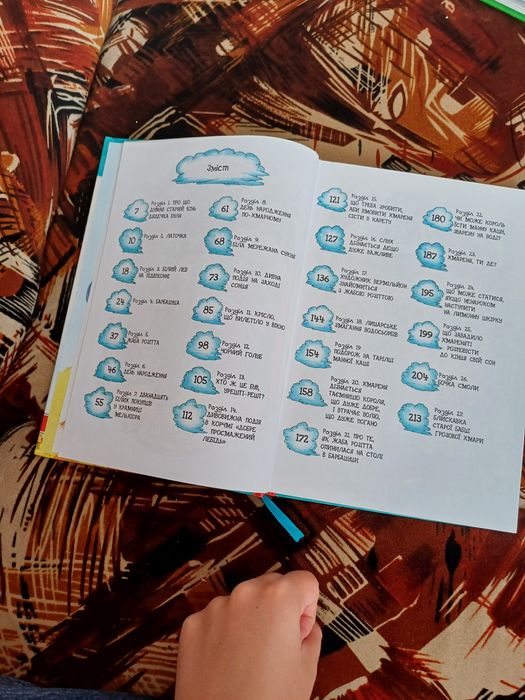 Зміст
7
Розділ 1. Про що
думав старий кінь
дядечка Пуна
10
Розділ 2. Латочка
18
Розділ 3. Білий лев
на підвіконні
24
Розділ 4. Барбацуца
37
Розділ 5.
Жаба Розітта
46
Розділ 6.
День народження
55
Розділ 7. Дванадцять
білих покупців
у крамниці
Мельхіора
61
Розділ 8.
День народження
по-хмарному
68
Розділ 9.
Біла мережана сукня
73
Розділ 10. Дивна
подія на заході
сонця
85
Розділ 11. Крісло,
що вилетіло у вікно
98
Розділ 12.
Чорний голуб
105
Розділ 13.
Хто ж це був,
урешті-решт?
112
Розділ 14.
Дивовижна подія
в корчмі «Добре
просмажений
лебідь»
121
Розділ 15.
Що треба зробити,
аби вмовити Хмарені
сісти в карету
127
Розділ 16. Слух
дізнається дещо
дуже важливе
136
Розділ 17.
Художник Вермільйон
знайомиться
з жабою Розіттою
144
Розділ 18. Лицарське
змагання водосьорбів
154
Розділ 19.
Подорож на тарілці
манної каші
158
Розділ 20. Хмареня
дізнається
таємницю короля,
що дуже добре,
і втрачає волю,
що дуже погано
172
Розділ 21. Про те,
як жаба Розітта
опинилася на столі
в Барбацуци
180
Розділ 22.
Чи може король
їсти манну кашу,
зварену на воді?
187
Розділ 23.
Хмареня, ти де?
195
Розділ 24.
Що може статися,
якщо ненароком
наступити
на лимонну шкірку
199
Розділ 25.
Що завадило
Хмареняті
розповісти
до кінця свій сон
204
Розділ 26.
Бочка смоли
213
Розділ 27.
Блискавка
старої бабці
Грозової Хмари